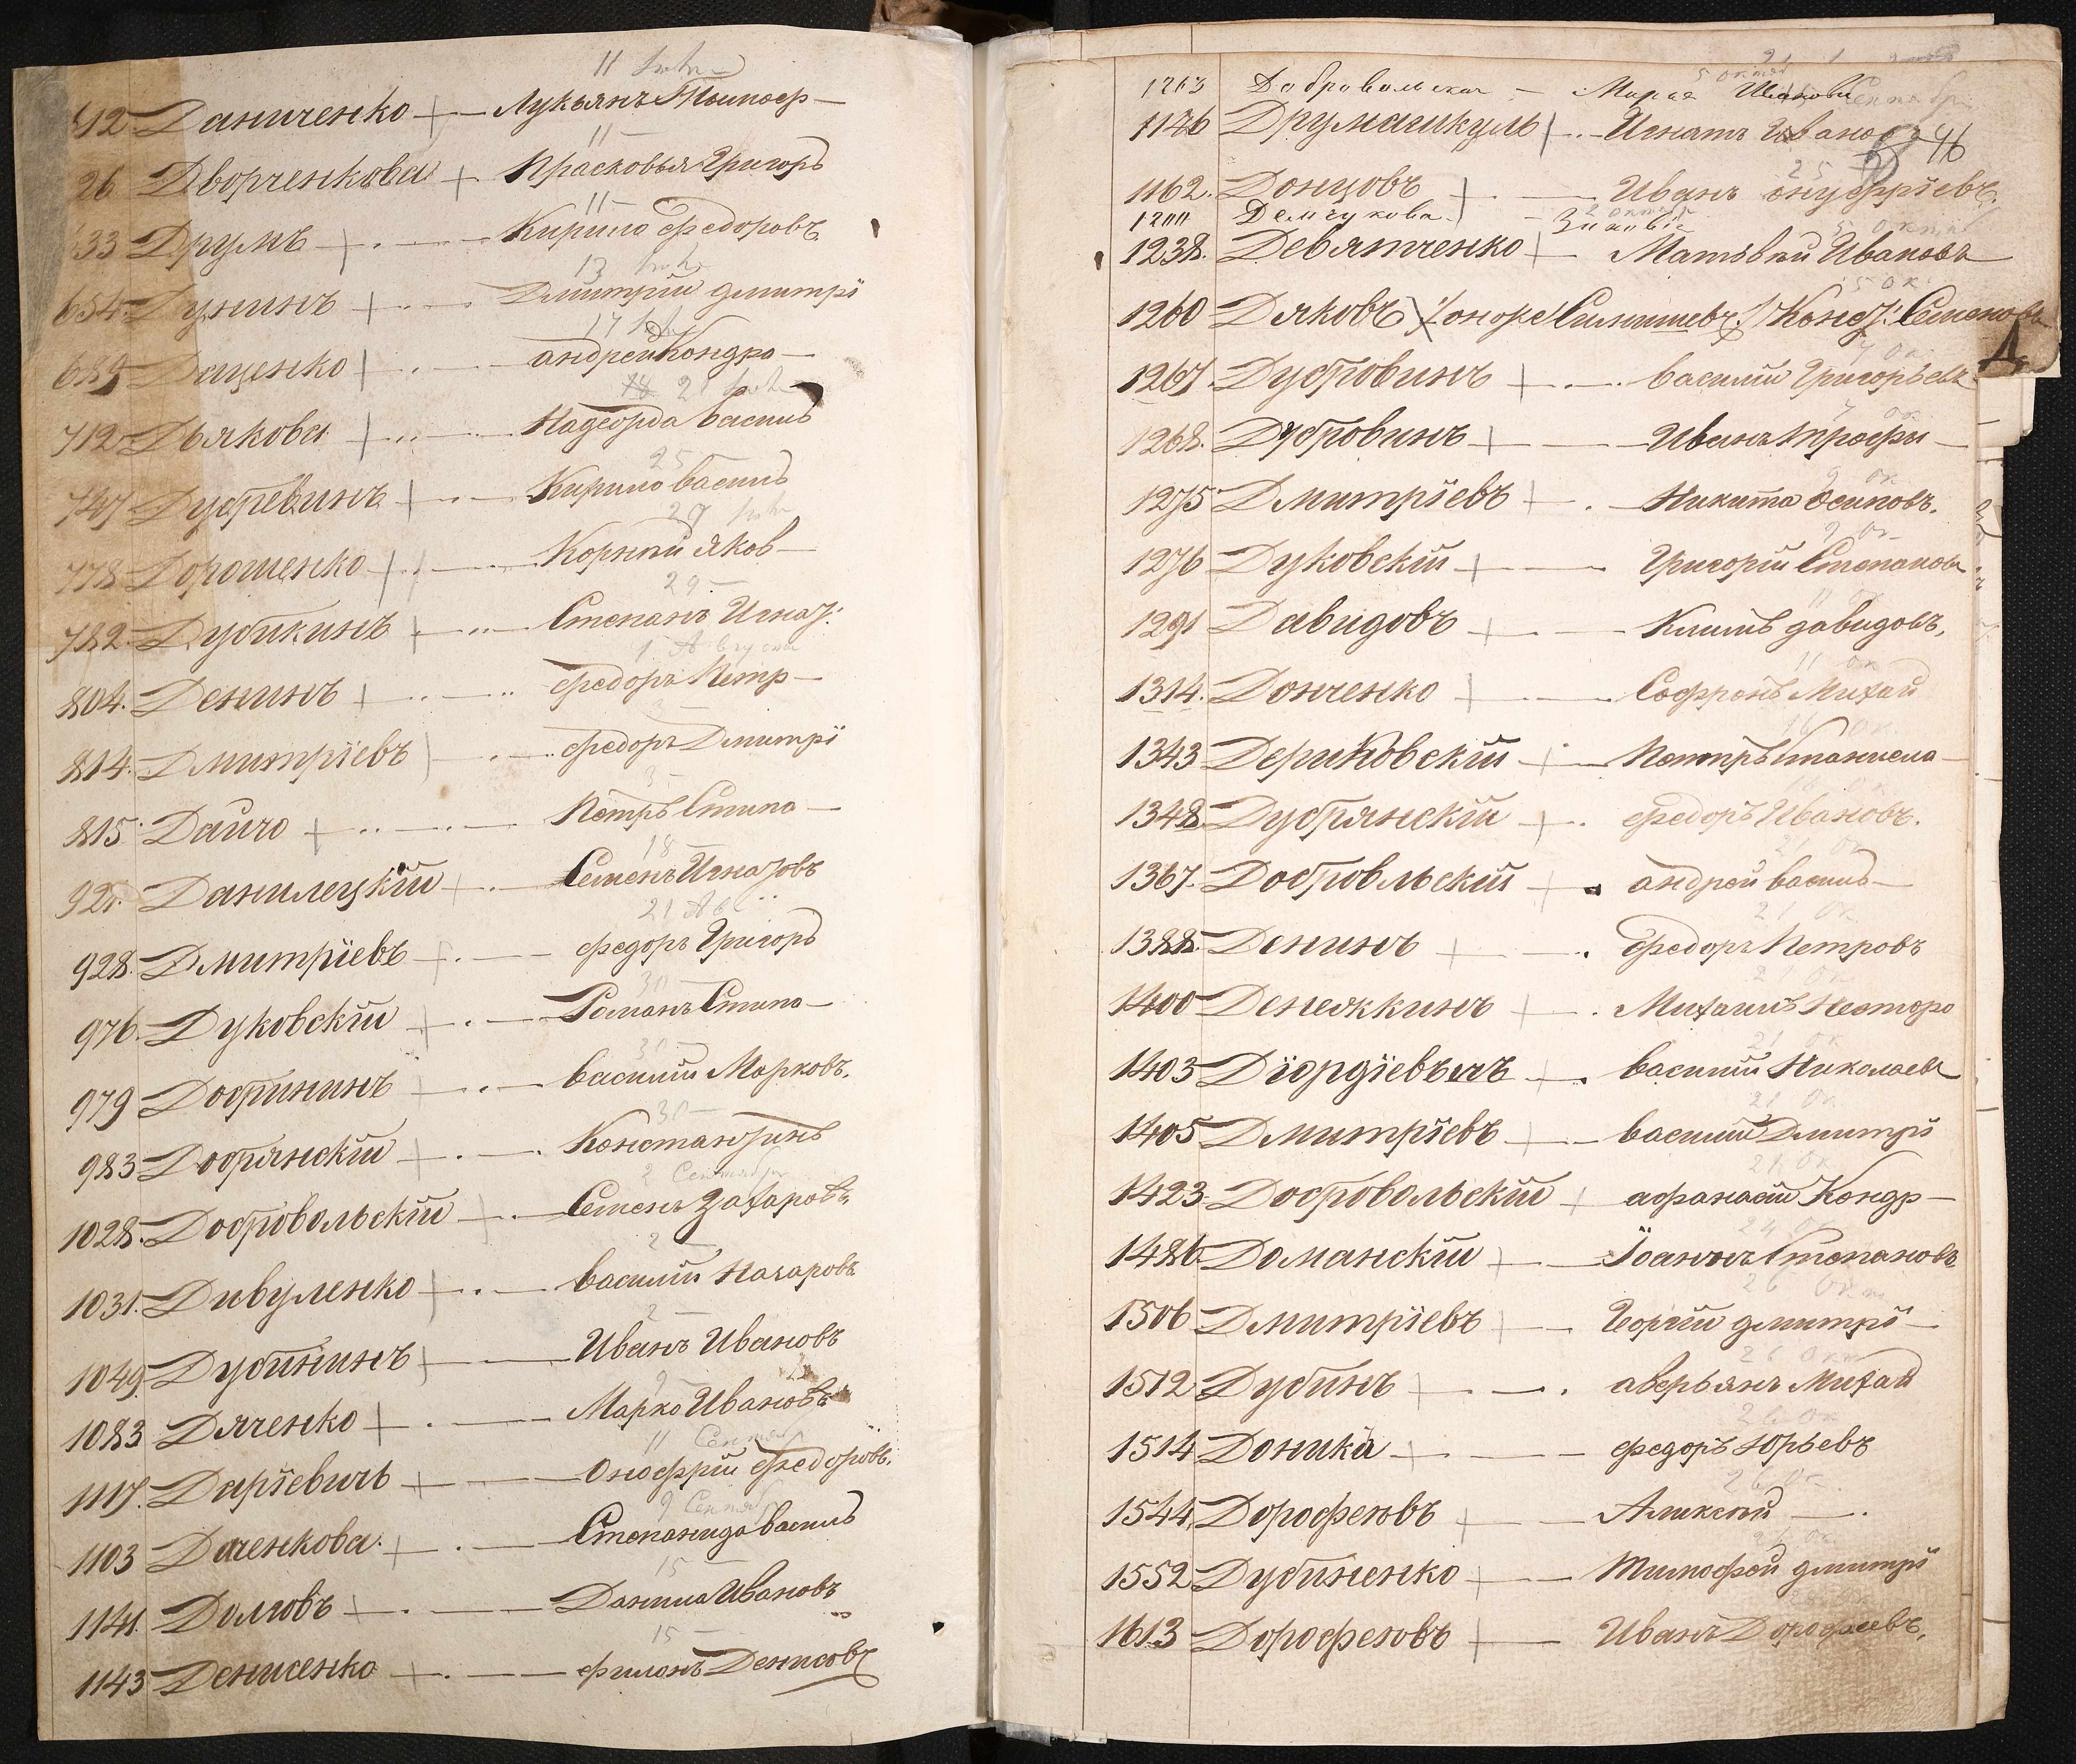 612 Даниченко Лукьянъ Тимоф
11
26 Дворченкова Прасковья Григорь
11
633 Друмъ Кирило Федоровъ
13
654 Дунинъ Дмитрій Дмитрі
17
689 Даценко Андрей Кондра
18 21
712 Дьякова Надежда Василь
25
747 Дубревинъ Кирило Василь
29
778 Дорошенко Корній Яков
29
782. Дубикинъ Степанъ Игнат:
1 Августа
804. Денинъ Федоръ Петр
3
814. Дмитріевъ Федоръ Дмитрі
3
815. Дайчо Петръ Степа
18
925. Данилецкій Семенъ Игнатовъ
21 Ав
928. Дмитріевъ Федоръ Григорь
30
976. Дуковскій Романъ Степа
30
979 Добринин Василій Марковъ.
30
983 Добрянскій Константинъ
2 Сентября
1028. Добровольскій Семенъ Захаровъ
2
1031. Дивуленко Василій Назаровъ
2
1049. Дубининъ Иванъ Ивановъ
9
1083 Дяченко Марко Ивановъ
11 Сентяб
1117. Даріевичъ Онофрій Федоровъ.
9 Сентяб
1103 Даченкова. Степанида Василь
15
1141. Долговъ Данила Ивановъ
15
1143 Денисенко Филонъ Денисовъ
5 октяб
1263 Добровольская Марія Иванова
Сентябр
1146 Друмашкуль Игнатъ Иванов
46
25
1162. Донцовъ Иванъ Онуфріевъ.
1200 Демчукова. Зиновія
5 октяб
1238. Девятченко Матвѣй Ивановъ
5 Ок
1260 Дяковъ Конст: Семеновъ
Д
7 Ок
1267. Дубровинъ Василій Григорьевъ
7 Ок
1268. Дубровинъ Иванъ Трофи
9 Ок
1275 Дмитріевъ Никита Осиповъ.
9 Ок
1276 Дуковскій Григорій Степанов
1291 Давидовъ Климъ Давидовъ,
11 Ок
1314. Донченко Софронъ Михай
16 Ок
1343 Дериковскій Петръ Станисла
16 Ок
1348 Дубрянскій Федоръ Ивановъ.
21 Ок
1367. Добровльскій Андрей Василь
21 Ок
1388. Денинъ Федоръ Петровъ
21 Ок
1400 Денежкинъ Михаилъ Нестеро
21 Ок
1403 Діордіевъичъ Василій Николаев
21 Ок
1405 Дмитріевъ Василій Дмитрі
21 Ок
1423. Добровольскій Афанасій Кондр
24 Ок
1486. Доманскій Іоаннъ Степановъ
26 Окт
1506 Дмитріевъ Георгій Дмитрі
26 Окт
1512 Дубинъ Аверьянъ Михай
26 Ок
1514 Доника Федоръ Юрьевъ
26 Ок
1544. Дорофеювъ Аликсѣй
26 Ок
1552 Дубиненко Тимофей Дмитрі
1613 Дорофеювъ Иванъ Дорофеевъ,